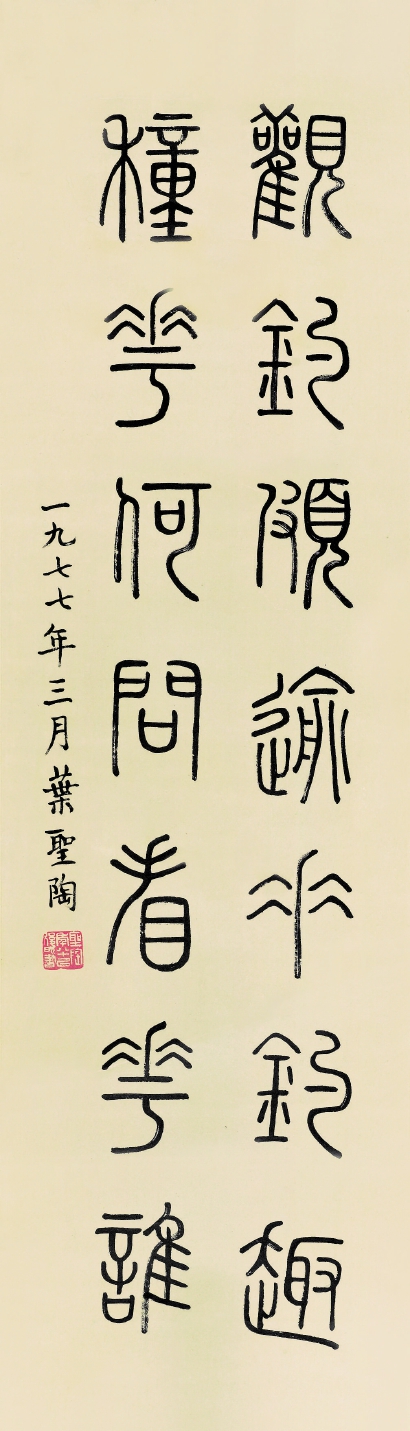 觀釣頗逾垂釣趣
種花何問看花誰
一九七七年三月葉聖陶